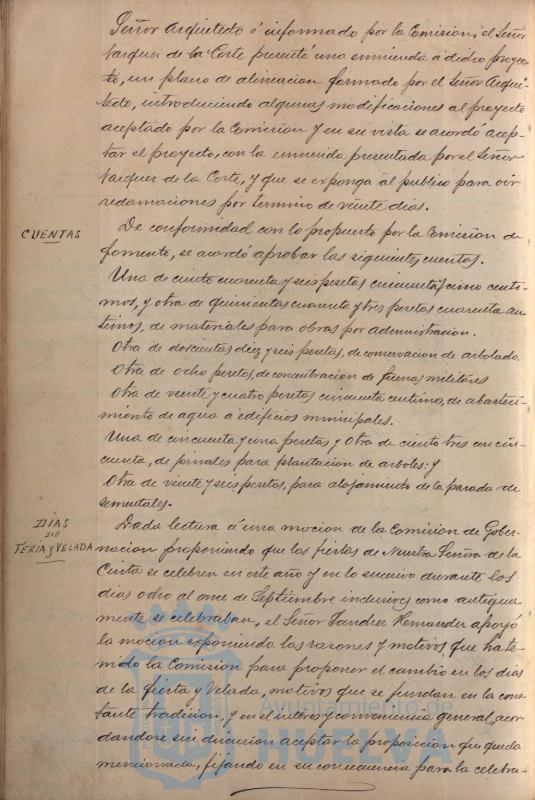 Señor Arquitecto é informado por la Comision; el Señor
Vazquez de la Corte presentó una enmienda a dicho proyec-
to, un plano de alineacion formado por el Señor Arqui-
tecto, introduciendo algunas modificaciones al proyecto
aceptado por la Comision y en su vista se acordó acep-
tar el proyecto, con la enmienda presentada por el Señor
Vazquez de la Corte, y que se exponga al publico para oir
reclamaciones por término de veinte dias.
CUENTAS
De conformidad con lo propuesto por la Comision de
fomento, se acordó aprobar las siguientes cuentas.
Una de ciento cuarenta y seis pesetas cincuenta y cinco centi-
mos, y otra de quinientas cuarenta y tres pesetas cuarenta cen-
timos, de materiales para obras por administracion.
Otra de doscientas diez y seis pesetas, de conservacion de arbolado.
Otra de ocho pesetas, de concentracion de fuerzas militares
Otra de veinte y cuatro pesetas cincuenta centimos, de abasteci-
miento de agua a edificios municipales.
Una de cincuenta y una pesetas y otra de ciento tres con cin-
cuenta, de jornales para plantacion de arboles: y
Otra de veinte y seis pesetas, para alojamiento de la parada de
sementales.
DÍAS
DE
FERIA y VELADA
Dada lectura á una mocion de la Comision de Gober-
nacion proponiendo que las fiestas de Nuestra Señora de la
Cinta se celebren en este año y en lo sucesivo durante los
dias ocho al once de Septiembre inclusives como antigua-
mente se celebraban, el Señor Sanchez Hernandez apoyó
la mocion exponiendo las razones y motivos que ha te-
nido la Comision para proponer el cambio en los dias
de la fiesta y Velada, motivos que se fundan en la cons-
tante tradicion, y en el interes y conveniencia general, acor-
dandose sin discusion aceptar la proposicion que queda
mencionada, fijando en su consecuencia para la celebra-
Ayuntamiento de
HUELVA